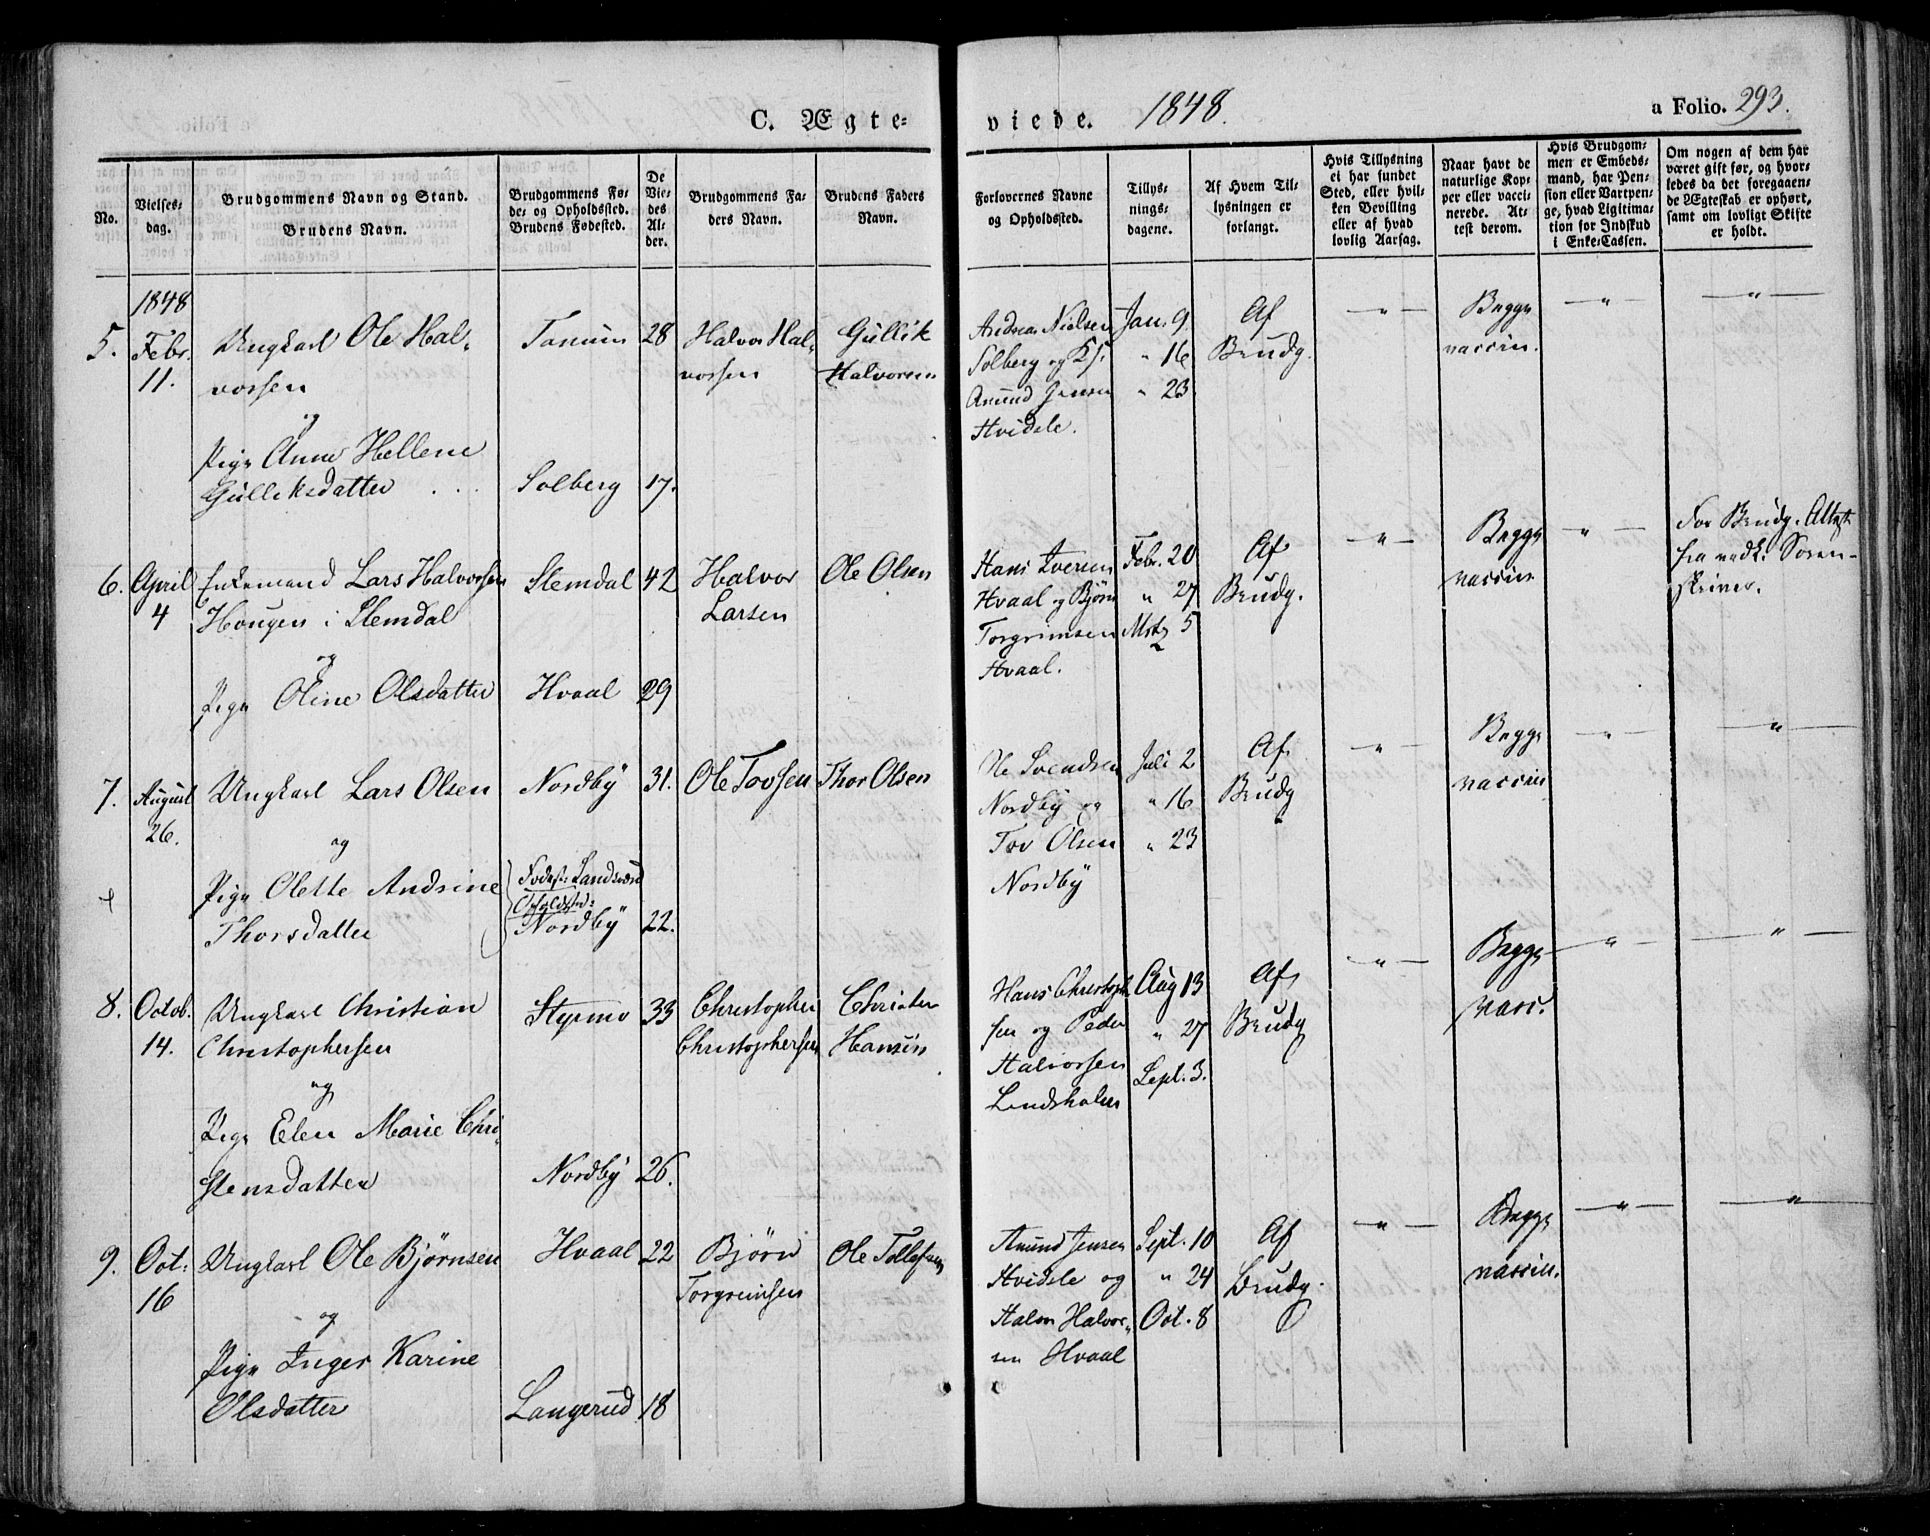 C. Ægte-
viede.
1848.
a Folio. 293.
No.
Vielses-
dag.
Brudgommens Navn og Stand.
Brudens Navn.
Brudgommens Fø-
de- og Opholdssted.
Brudens Fødested.
De
Vie-
des
Al-
der.
Brudgommens Fa-
ders Navn.
Brudens Faders
Navn.
Forlovernes Navne
og Opholdssted.
Tillys-
nings-
dagene.
Af Hvem Til-
lysningen er
forlangt.
Hvis Tillysning
ei har fundet
Sted, eller hvil-
ken Bevilling
eller af hvad
lovlig Aarsag.
Naar havt de
naturlige Kop-
per eller vacci-
nerede. At-
test derom.
Hvis Brudgom-
men er Embeds-
mand, har Pen-
sion eller Vartpen-
ge, hvad Ligitima-
tion for Indskud
i Enke-Cassen.
Om nogen af dem har
været gift før, og hvor-
ledes da det foregaaen-
de Ægteskab er ophørt,
samt om lovligt Skifte
er holdt.
1848
5. Febr.
11.
Ungkarl Ole Hal-
vorsen
og
Pige Anne Hellene
Gulliksdatter
Tanum 28
Solberg 17.
Halvor Hal-
vorsen
Gullik
Halvorsen
Andreas Nielsen
Solberg og
Amund Jensen
Hvidsle.
Jan. 9
" 16
" 23
Af
Brudg.
"
Begge
vaccin.
"
"
6. April
4
Enkemand Lars Halvorsen
Hougen i Slemdal
og
Pige Oline Olsdatter
Slemdal 42
Hvaal 29
Halvor
Larsen
Ole Olsen
Hans Iversen
Hvaal og Bjørn
Torgrimsen
Hvaal.
Febr. 20
" 27
Mrtz 5
Af
Brudg.
"
Begge
vaccin.
"
For Brudg. Attest
fra vedk. Soren-
skriver.
7. August
26.
Ungkarl Lars Olsen
og
Pige Olette Andrine
Thorsdatter
Nordby 31.
Fødest:
Opholdsted:
Nordby 22.
Ole Tovsen
Thor Olsen
Ole Svendsen
Nordby og
Tov Olsen
Nordby
Juli 2
" 16
" 23
Af
Brudg
"
Begge
vaccin
"
"
8. Octob.
14.
Ungkarl Christian
Christophersen
og
Pige Elen Marie Chri-
stensdatter
Styrmo 33
Nordby 26.
Christopher
Christophersen
Christen
Hansen
Hans Christoph-
sen og Peder
Halvorsen
Lindsholm
Aug 13
" 27
Sept. 3.
Af
Brudg
"
Begge
vacc.
"
"
9. Oct:
16
Ungkarl Ole Bjørnsen
og
Pige Inger Karine
Olsdatter
Hvaal 22
Langerud 18
Bjørn
Torgrimsen
Ole Tollefsen
Amund Jensen
Hvidsle og
Halvor Halvor-
sen Hvaal
Sept. 10
" 24
Oct. 8
Af
Brudg.
"
Begge
vaccin.
"
"